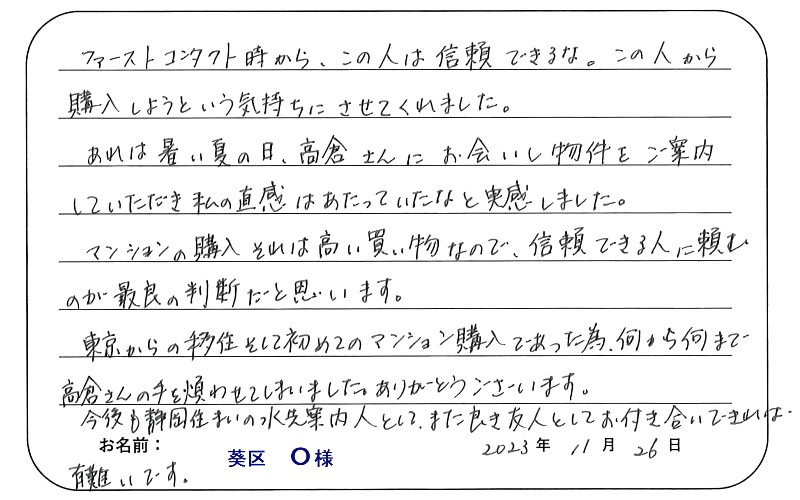 ファーストコンタクト時から、この人は信頼できるな。この人から
購入しようという気持ちにさせてくれました。
あれは暑い夏の日、高倉さんにお会いし物件をご案内
していただき私の直感はあたっていたなと実感しました。
マンションの購入それは高い買い物なので、信頼できる人に頼む
のが最良の判断だと思います。
東京からの移住そして初めてのマンション購入であった為、何から何まで
高倉さんの手を煩わせてしまいました。ありがとうございます。
今後も静岡住まいの水先案内人として、また良き友人としてお付き合いできれば
お名前： 葵区 O様 2023年 11月 26日
有難いです。